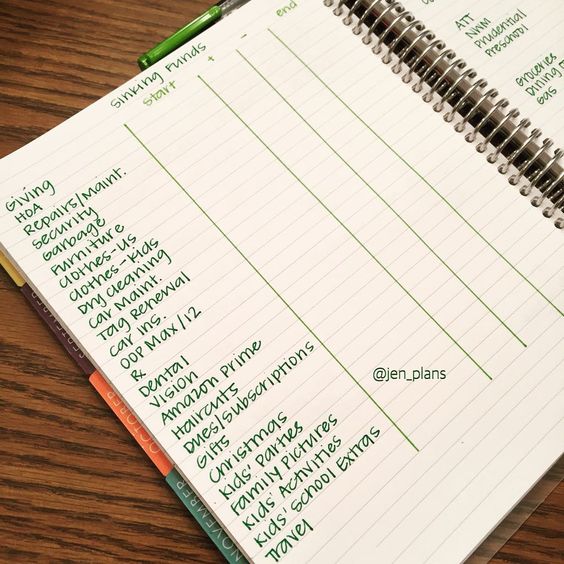 Sinking Funds
start + - end
Giving
HOA
Repairs/Maint.
Security
Garbage
Furniture
Clothes-us
Clothes-kids
Dry cleaning
Car Maint.
Tag Renewal
Car Ins.
OOP Max/12
Rx
Dental
Vision
Amazon Prime
Haircuts
Dues/Subscriptions
Gifts
Christmas
Kids' Parties
Family Pictures
Kids' Activities
Kids' School Extras
Travel
@jen_plans
ATT
NWM
Prudential
Preschool
Groceries
Dining
Gas
OCTOBER
NOVEMBER